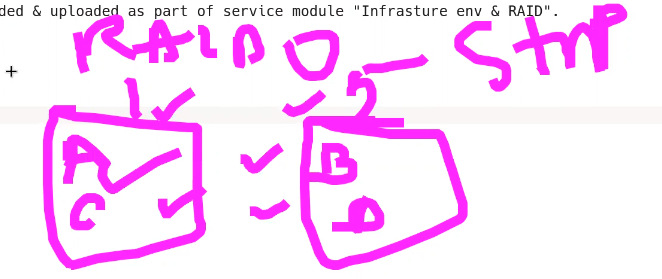 ded & uploaded as part of service module "Infrasture env & RAID".
RAID 0 - Strip
+
1 2
A B
C D